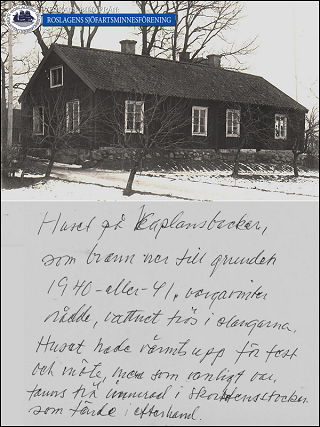 ROSLAGENS SJÖFARTSMINNESFÖRENING
Huset på Kaplansbacken,
som brann ner till grunden
1940-eller-41. vargavinter
rådde, vattnet frös i slangarna.
Huset hade värmts upp för fest
och möte, men som vanligt var,
fanns trä inmurad i skorstensstocken
som tände i efterhand.